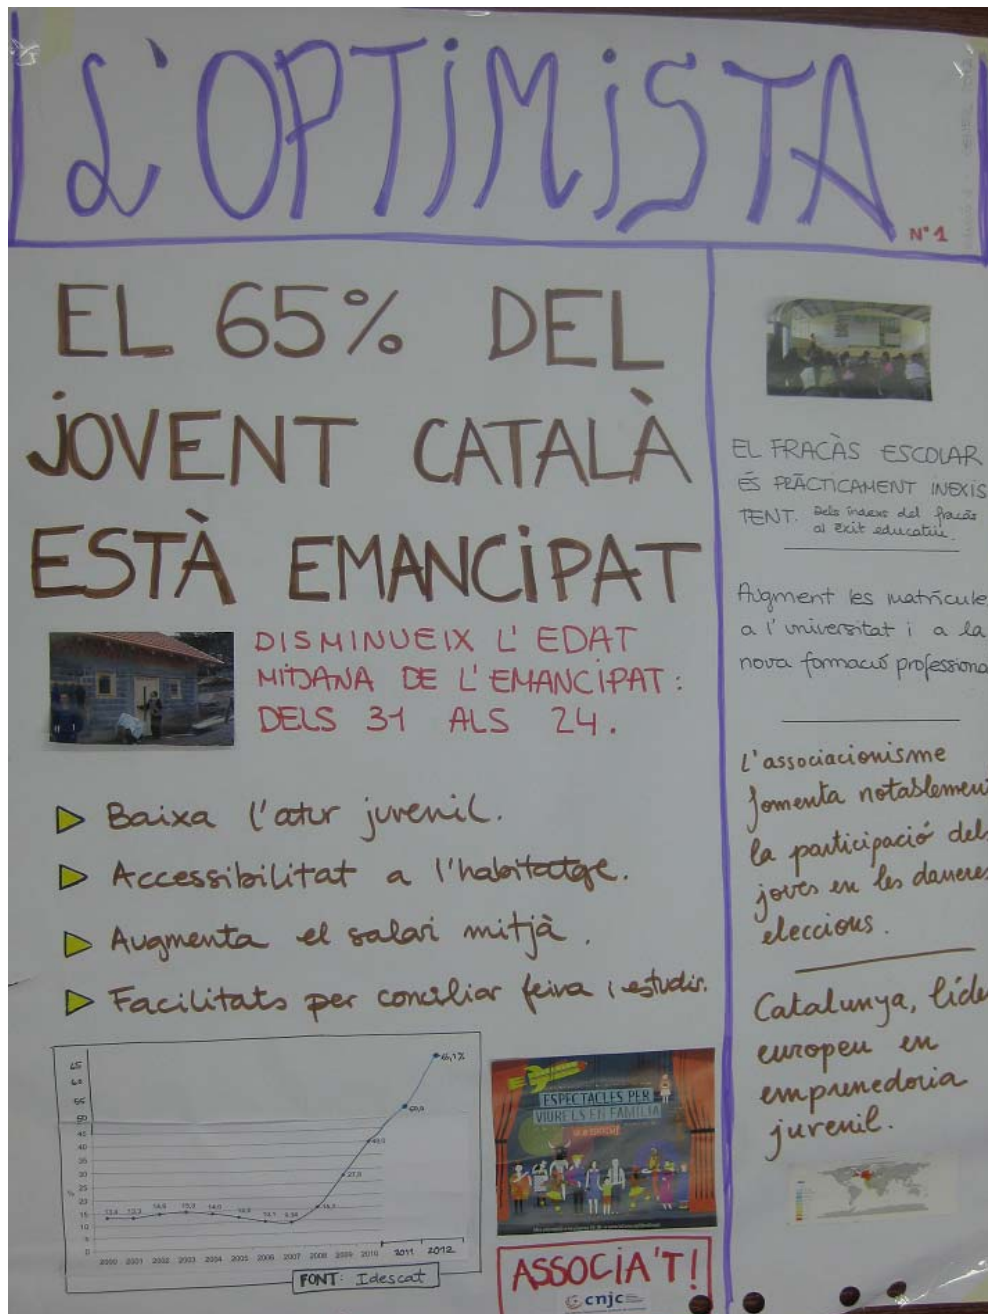 L'OPTIMISTA
Nº 1
EL 65% DEL
JOVENT CATALÀ
ESTÀ EMANCIPAT
DISMINUEIX L'EDAT
MITJANA DE L'EMANCIPAT:
DELS 31 ALS 24.
Baixa l'atur juvenil.
Accessibilitat a l'habitatge.
Augmenta el salari mitjà.
Facilitats per conciliar feina i estudis.
65
60
55
50
45
40
35
30
25
20
15
10
5
0
%
66,1%
27,8
2000 2001 2002 2003 2004 2005 2006 2007 2008 2009 2010 2011 2012
FONT: Idescat
ESPECTACLES PER
VIURE'LS EN FAMÍLIA
ASSOCIA'T!
cnjc
EL FRACÀS ESCOLAR
ÉS PRÀCTICAMENT INEXIS
TENT. Dels índexs del fracàs
al èxit educatiu.
Augment les matrícule
a l'universitat i a la
nova formació professiona
L'associacionisme
fomenta notablement
la participació dels
joves en les darreres
eleccions.
Catalunya, líde
europeu en
emprenedoria
juvenil.